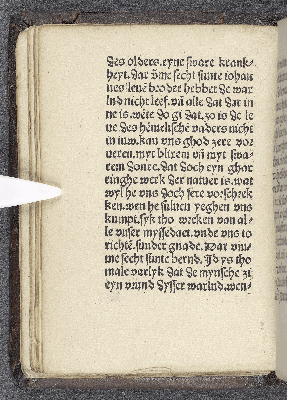 des olders. eyne sware krank-
heyt. dar ōme secht sunte iohan
nes leuē broder hebbet de war
lnd nicht leef. vn̄ alle dat dat in
ne is. wēte do gi dat. so is de le
ue des hēmelische vaders nicht
in iuw. kan vns ghod sere vor
veren. myt blixem vn̄ myt swa
rem donre. dat doch eyn ghe
ringhe werk der natuer is. wat
wyl he vns doch sere vorschrek
ken. wen he suluen yeghen vns
kumpt. syk tho wreken van al-
le vnser myssedaet. vnde vns to
richtē. sunder gnade. War vm-
me secht sunte bernd. Id ys tho
male verlyk dat de mynsche zi
eyn vrund dysser warlnd. wen-